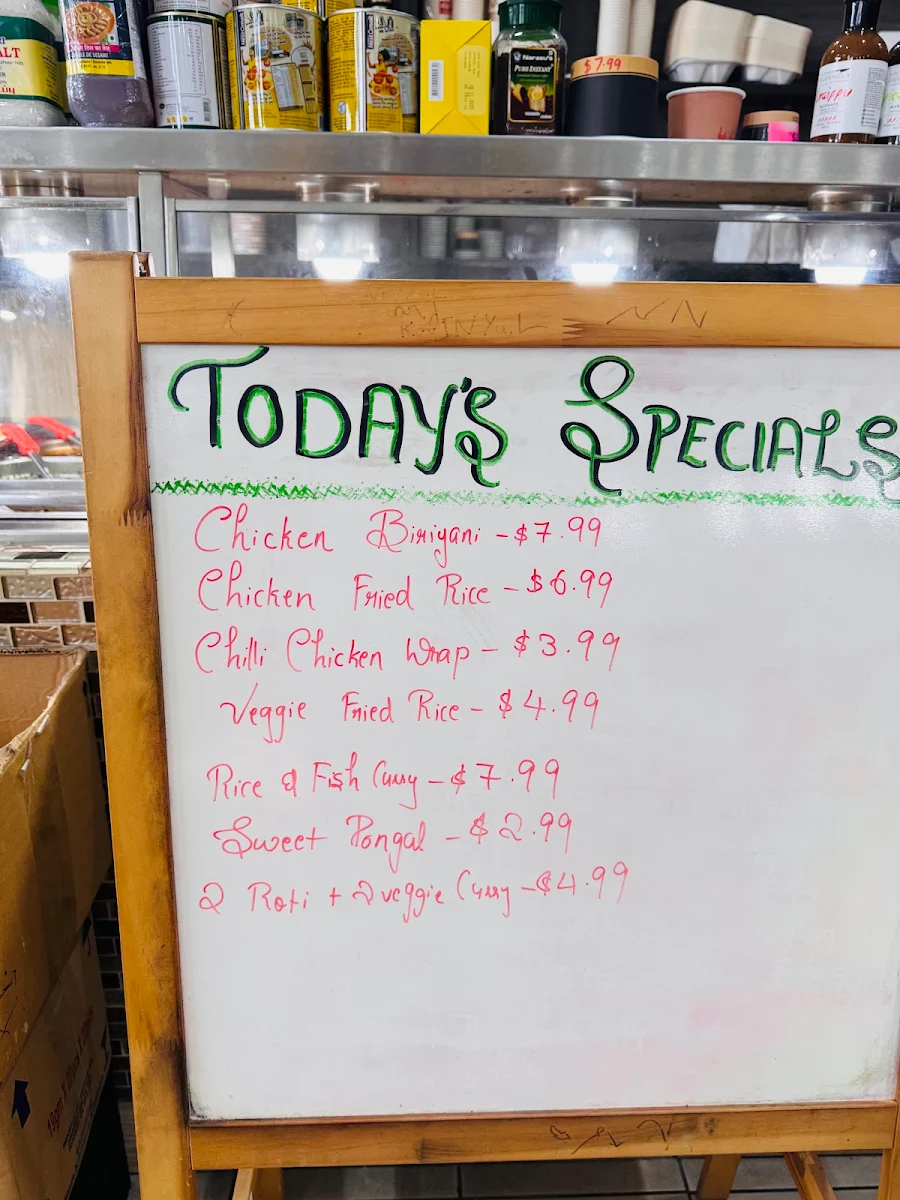 ALT
$7.99
PURE INSTANT
TODAY'S SPECIALS
Chicken Biriyani - $7.99
Chicken Fried Rice - $6.99
Chilli Chicken Wrap - $3.99
Veggie Fried Rice - $4.99
Rice & Fish Curry - $7.99
Sweet Pongal - $2.99
2 Roti + 2 veggie Curry - $4.99